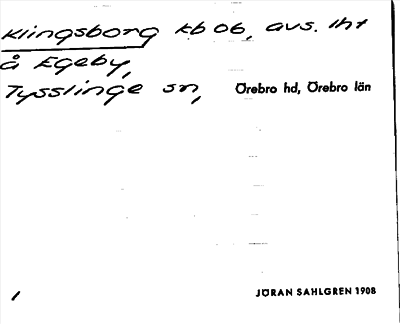 Klingsborg kb 06, avs. lht
å Egeby,
Tysslinge sn, Örebro hd, Örebro län
JÖRAN SAHLGREN 1908